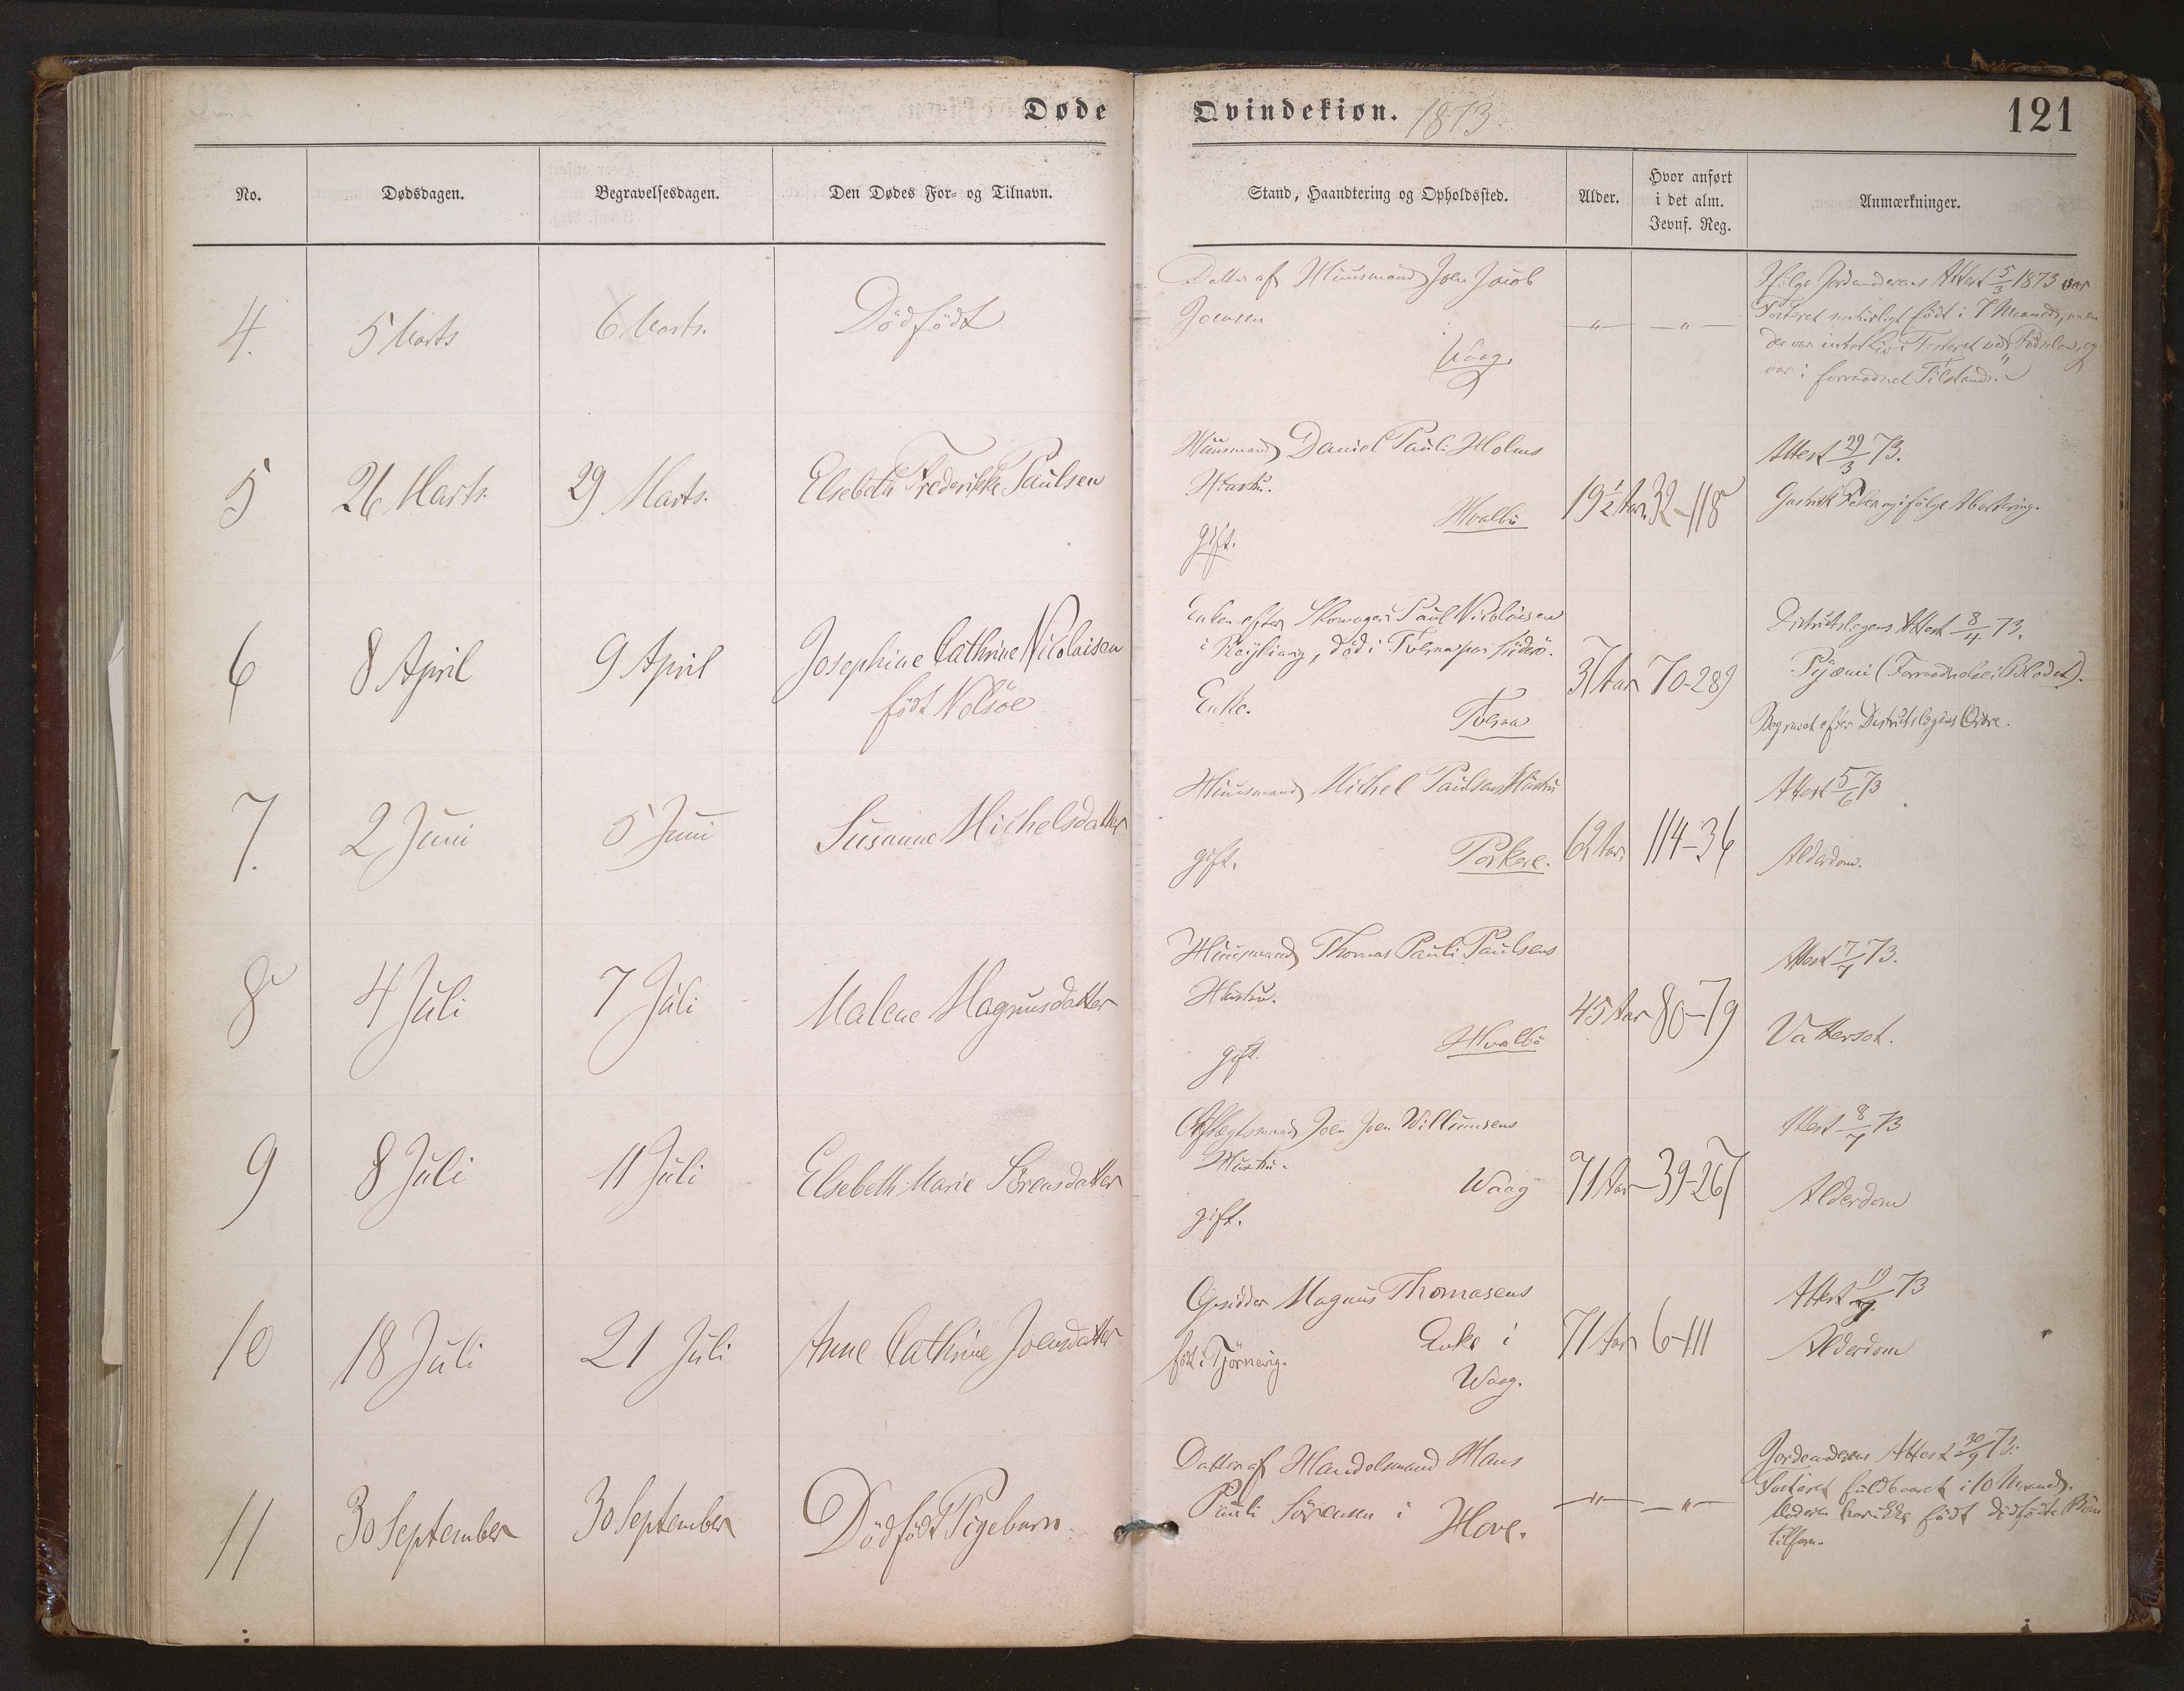 Døde
Qvindekiøn. 1873
121
No.
Dødsdagen.
Begravelsesdagen.
Den Dødes For- og Tilnavn.
Stand, Haandtering og Opholdssted.
Alder.
Hvor anført
i det alm.
Jevnf. Reg.
Anmærkninger.
4.
5 Marts
6 Marts.
Dødfødt
Datter af Huusmand Joen Jacob
Joensen
Waag.
—"—
—"—
Ifølge Jordemoderens Attest 5/3 1873 var
Fosteret naturligt født i 7 Maaned, men
der var intet Liv i Fosteret ved Fødselen, og
var i forraadnet Tilstand."
5
26 Marts.
29 Marts.
Elsebeth Frederikke Paulsen
Huusmand Daniel Pauli Holms
Hustru.
Hvalbø
gift.
19½ Aar.
32-118
Attest 29/3 73.
Gastrisk Feber ifølge
6
8 April
9 April
Josephine Cathrine Nicolaisen
født Nolsøe
Enke efter Skomager Paul Nicolaisen
i , død i Tveraa paa Suderø.
Enke.
Tveraa
37 Aar
70-289
Districtslægens Attest 8/4 73.
Pyæmi (Forraadnelse i Blodet).
Begravet efter Districtslægens Ordre.
7.
2 Juni
5 Juni
Susanne Michelsdatter
Huusmand Michel Paulsens Hustru
gift.
Porkere.
62 Aar
114-36
Attest 5/6 73
Alderdom.
8
4 Juli
7 Juli
Malene Magnusdatter
Huusmand Thomas Pauli Paulsens
Hustru.
Hvalbø
gift.
45 Aar
80-79
Attest 7/7 73.
Vattersot.
9
8 Juli
11 Juli
Elsebeth Marie Sørensdatter
Aftægtsmand Joen Joen Willumsens
Hustru.
Waag
gift.
71 Aar
39-267
Attest 8/7 73
Alderdom
10
18 Juli
21 Juli
Anne Cathrine Joensdatter
Opsidder Magnus Thomasens
Enke i
født i Tjørnevig.
Waag.
71 Aar
6-111
Attest 19/7 73
Alderdom
11
30 September
30 September
Dødfødt Pigebarn.
Datter af Handelsmand Hans
Pauli Sørensen i
Hove.
—"—
—"—
Jordemoderens Attest 30/9 73:
Fosteret fuldbaaret i 10 Maaned.
Moderen har ikke født dødfødte Børn
tilforn.